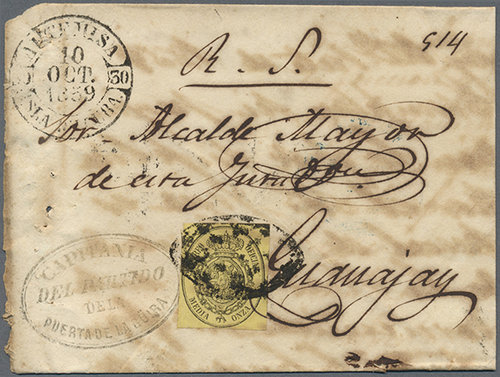 ARTEMISA
10
OCT.
1859
30
ISLA CUBA
R. S.
514
Sor. Alcalde Mayor
de esta Juridon
Guanajay
CAPITANIA
DEL PARTIDO
DE LA
PUERTA DE LA GÜIRA
MEDIA ONZA